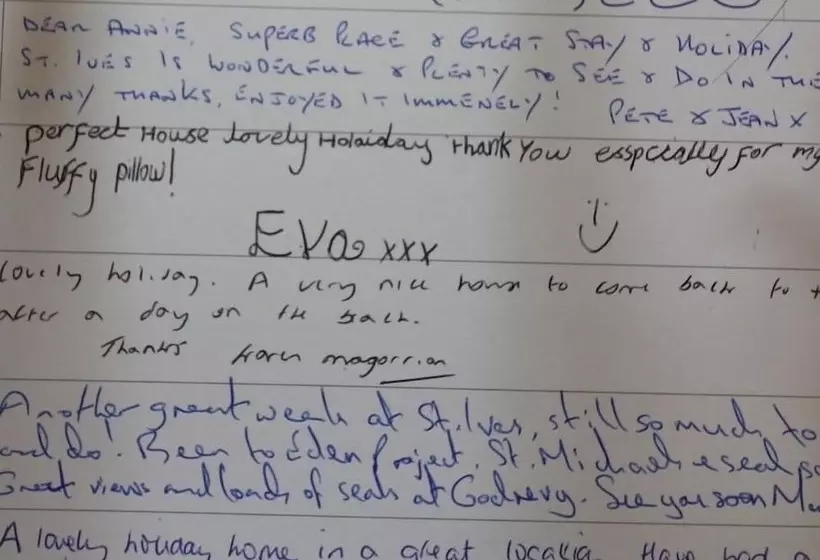 DEAR ANNIE, SUPERB PLACE & GREAT STAY & HOLIDAY.
ST. IVES IS WONDERFUL & PLENTY TO SEE & DO IN THE
MANY THANKS, ENJOYED IT IMMENELY! PETE & JEAN X
perfect House lovely Holaiday thank You esspcially for my
Fluffy pillow!
Eva xxx
lovely holiday. A very nice house to come back to
after a day on the beach.
Thanks Karen magorrian
Another great week at St. Ives, still so much to
and do! Been to Eden Project, St. Michaels & seal
Great views and loads of seals at Godrevy. See you soon
A lovely holiday home in a great location. Have had a